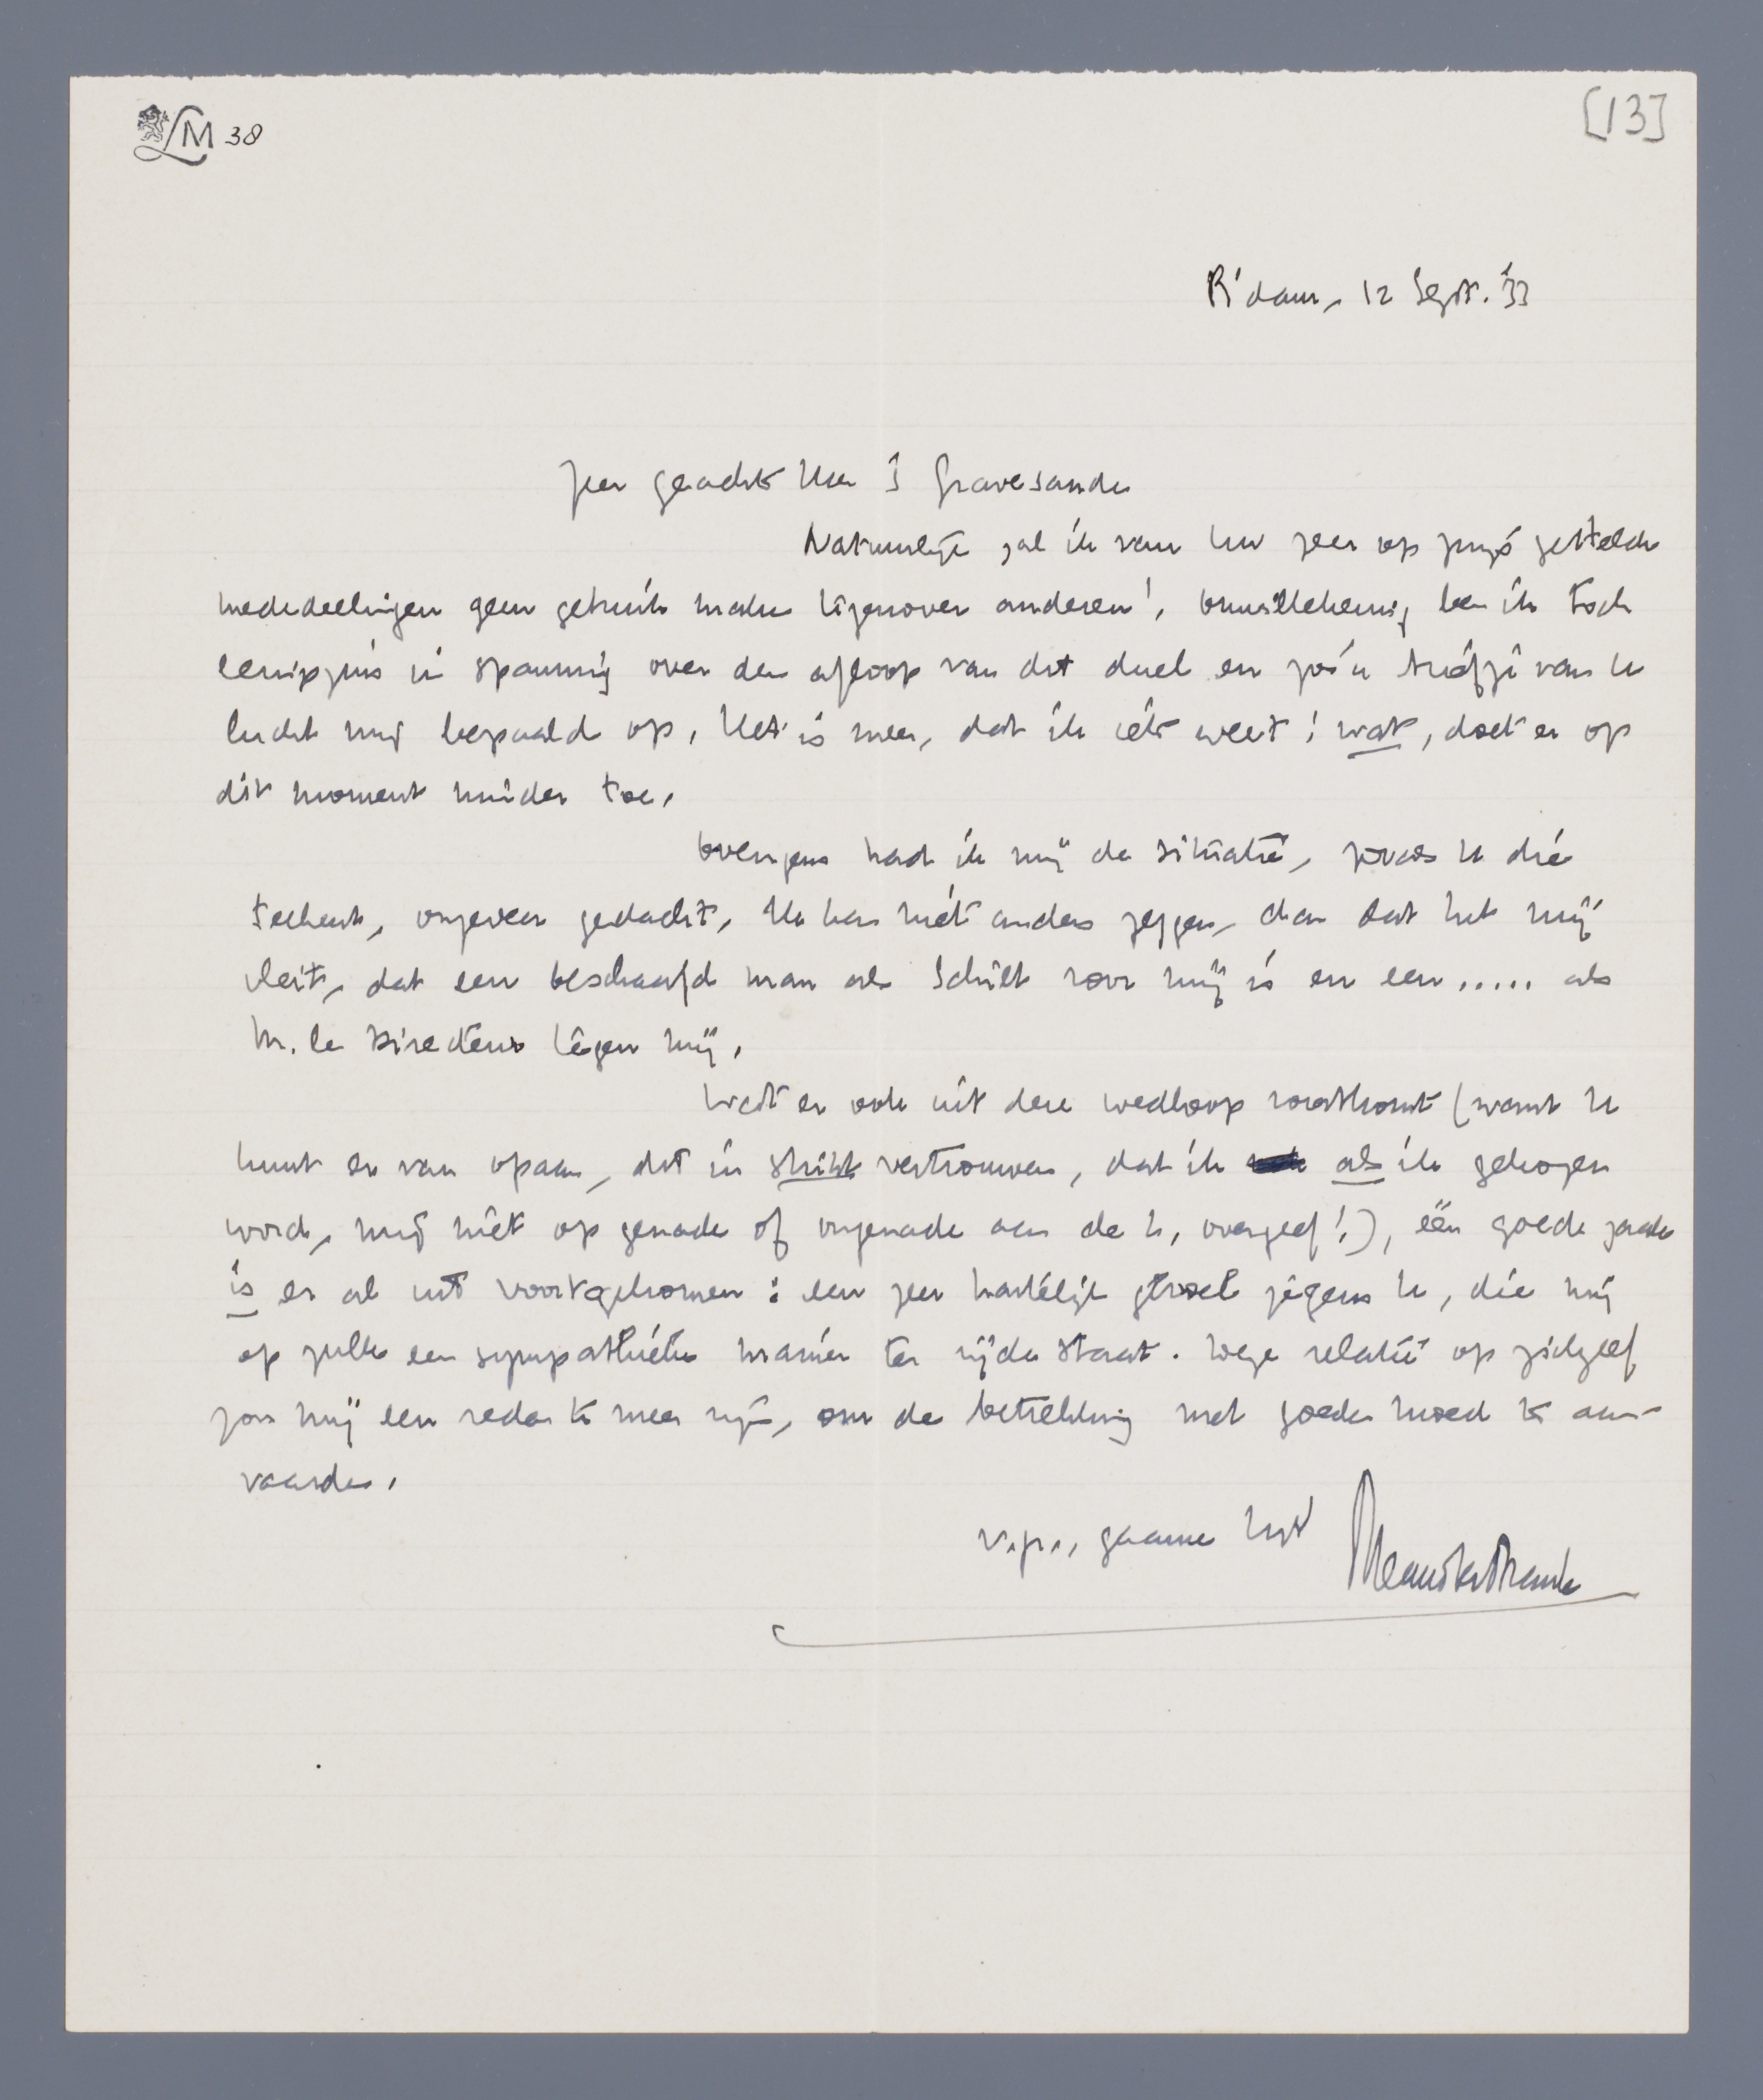 LM 38
[13]
R'dam, 12 Sept. '33
Zeer geachte Heer 's Gravesande
Natuurlijk zal ik van Uw zeer op prijs gestelde
mededeelingen geen gebruik maken tegenover anderen!, onwillekeurig ben ik toch
eenigzins in spanning over den afloop van dit duel en zoo'n briefje van U
lucht mij bepaald op. Het is meer, dat ik iets weet; wat, doet er op
dit moment minder toe.
Overigens had ik mij de situatie, zooals U die
teekent, ongeveer gedacht. Ik kan niet anders zeggen, dan dat het mij
vleit, dat een beschaafd man als Schilt voor mij is en een ..... als
M. le Directeur tegen mij.
Wat er ook uit deze wedloop voortkomt (want U
kunt er van opaan, dit in strikt vertrouwen, dat ik als ik gekozen
word, mij niet op genade of ongenade aan de H. overgeef!), één goede zaak
is er al uit voortgekomen: een zeer hartelijk gevoel jegens U, die mij
op zulk een sympathieke manier ter zijde staat. Deze relatie op zichzelf
zou mij een reden te meer zijn, om de betrekking met goeden moed te aan-
vaarden.
v.h., gaarne Uw
Menno ter Braak